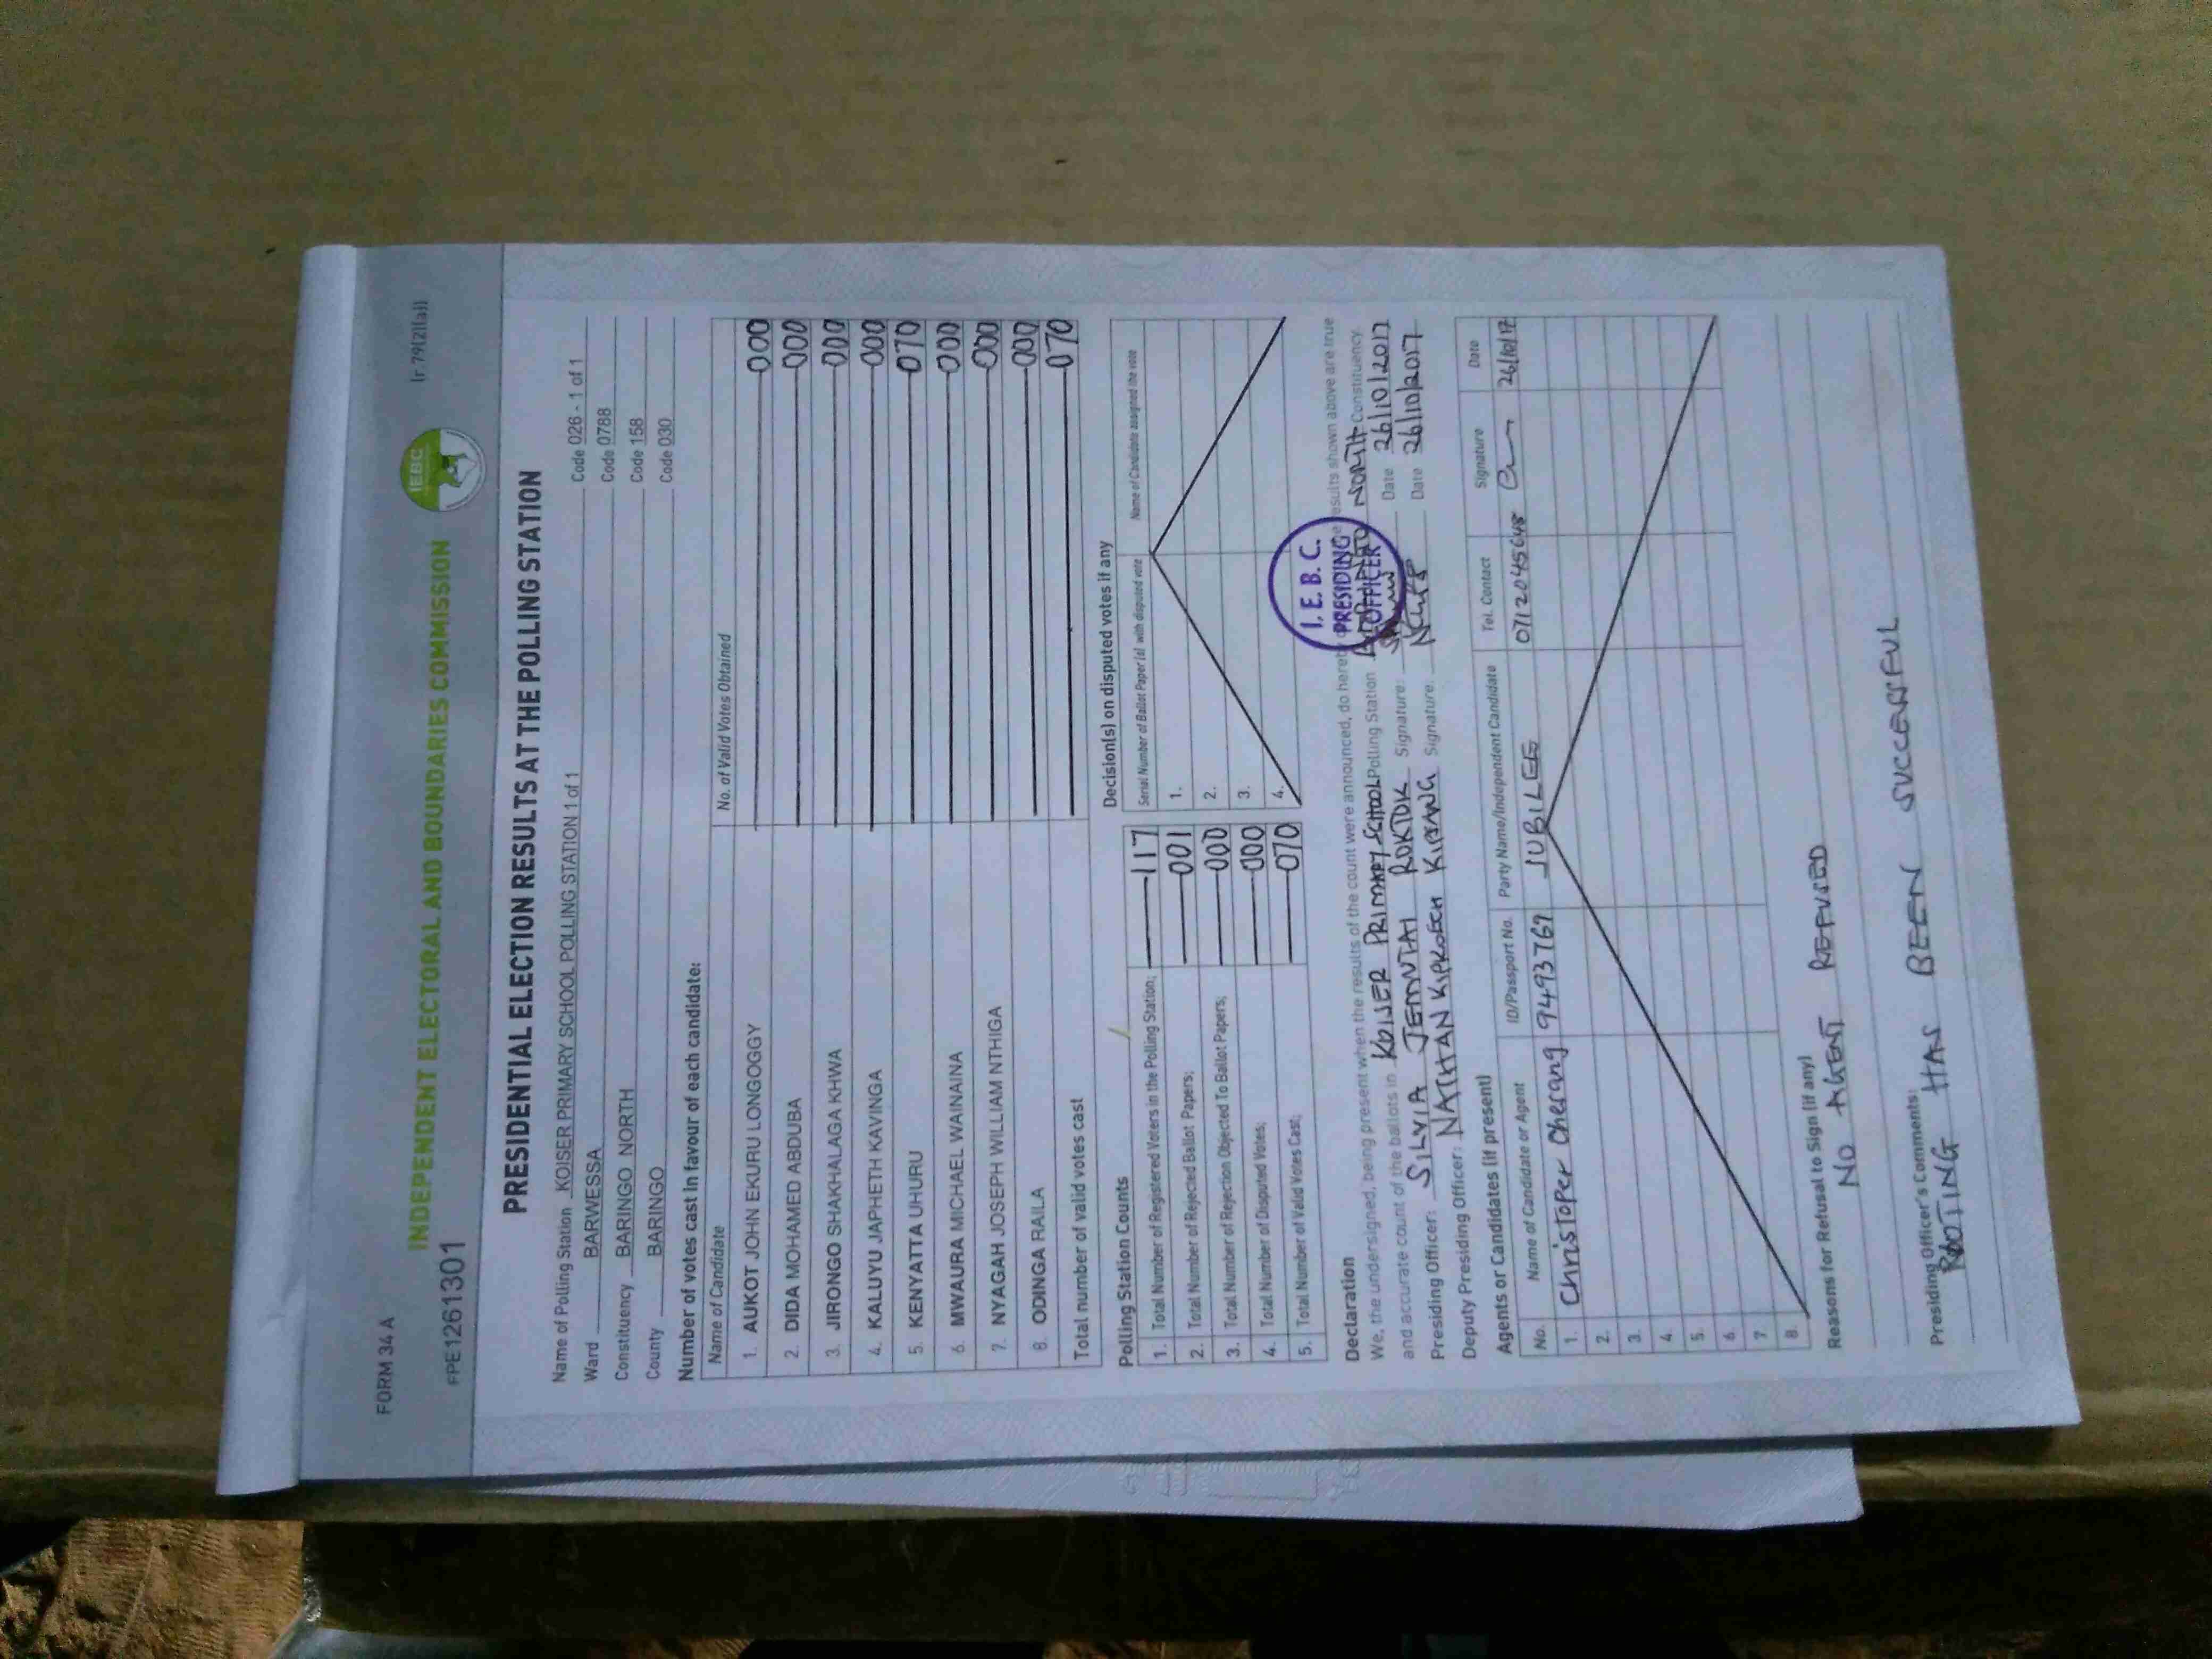 FORM 34 A
(r 79(2)(a))
INDEPENDENT ELECTORAL AND BOUNDARIES COMMISSION
IEBC
PRESIDENTIAL ELECTION RESULTS AT THE POLLING STATION
Name of Polling Station KOISER PRIMARY SCHOOL POLLING STATION 1 of 1 Code 026 - 1 of 1
Ward BARWESSA Code 0788
Constituency BARINGO NORTH Code 158
County BARINGO Code 030
Number of votes cast in favour of each candidate:
Name of Candidate No. of Valid Votes Obtained
1. AUKOT JOHN EKURU LONGOGGY 000
2. DIDA MOHAMED ABDUBA 000
3. JIRONGO SHAKHALAGA KHWA 000
4. KALUYU JAPHETH KAVINGA 000
5. KENYATTA UHURU 070
6. MWAURA MICHAEL WAINAINA 000
7. NYAGAH JOSEPH WILLIAM NTHIGA 000
8. ODINGA RAILA 000
Total number of valid votes cast 070
Polling Station Counts
1. Total Number of Registered Voters in the Polling Station; 117
2. Total Number of Rejected Ballot Papers; 001
3. Total Number of Rejection Objected To Ballot Papers; 000
4. Total Number of Disputed Votes; 000
5. Total Number of Valid Votes Cast; 070
Decision(s) on disputed votes if any
Serial Number of Ballot Paper(s) with disputed vote Name of Candidate assigned the vote
1.
2.
3.
4.
I. E. B. C.
PRESIDING
OFFICER
Declaration
We, the undersigned, being present when the results of the count were announced, do hereby results shown above are true
and accurate count of the ballots in KOISER PRIMARY SCHOOL Polling Station NORTH Constituency.
Presiding Officer: SILVIA JEMUTAI ROKTOK Signature: Date 26/10/2017
Deputy Presiding Officer: NATHAN KIPKOECH KIPANG Signature: Date 26/10/2017
Agents or Candidates (if present)
No. Name of Candidate or Agent ID/Passport No. Party Name/Independent Candidate Tel. Contact Signature Date
1. Christoper Cherang 94493769 JUBILEE 0712045648 26/10/17
2.
3.
4.
5.
6.
7.
8.
Reasons for Refusal to Sign (if any)
NO AGENT REFUSED
Presiding Officer's Comments:
HAS BEEN SUCCESSFUL